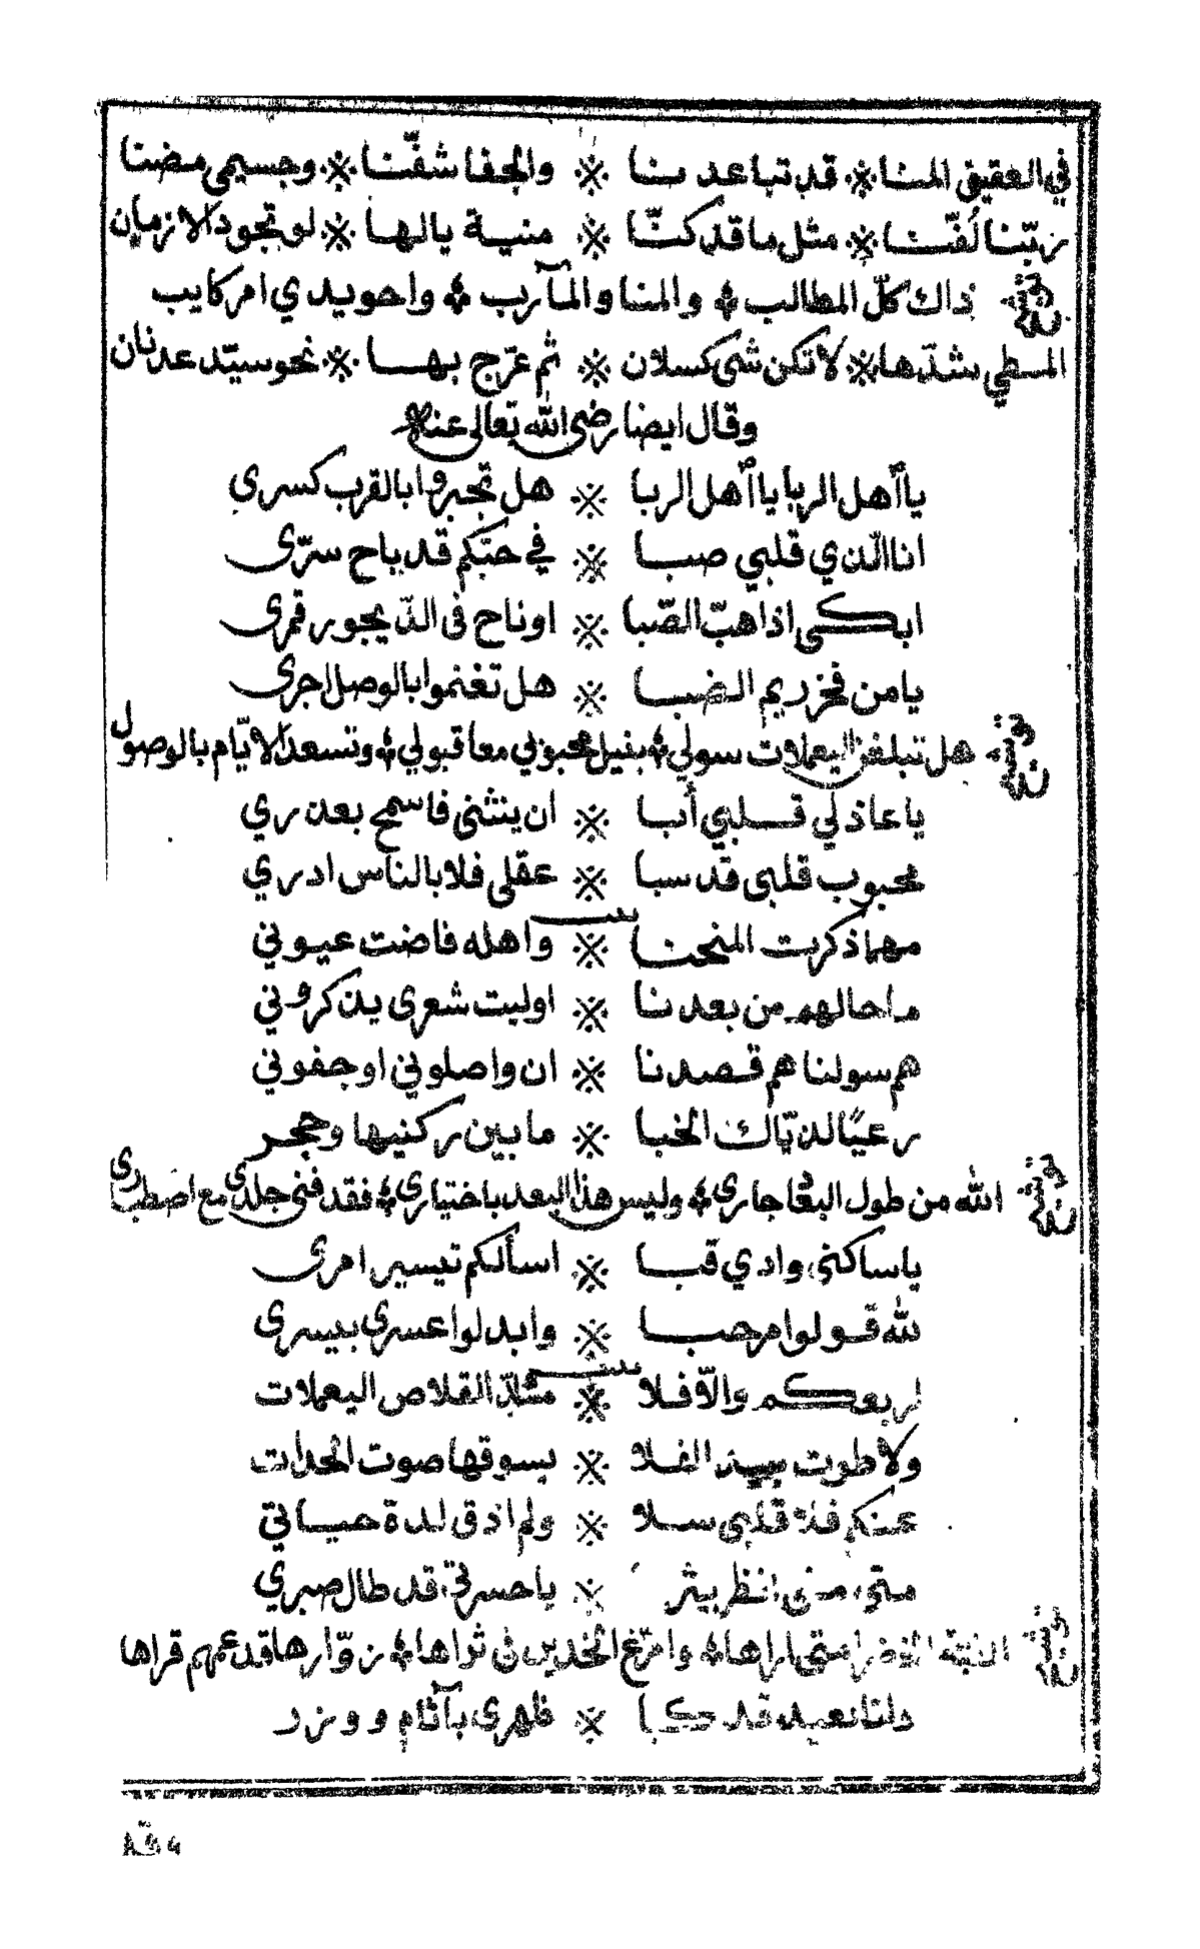 في العقيق المنا ※ قد تباعد بنا ※ والجفا شفّنا ※ وجسيمي مضنا
ربّنا لُفّنا ※ مثل ما قد كنّا ※ منية يالها ※ لو تجود الازمان
توشيح ذاك كلّ المطالب ※ والمنا والمآرب ※ واحويدي امر كايب
المطي شدّها ※ لا تكن شي كسلان ※ ثم عرّج بها ※ نحو سيّد عدنان
وقال ايضا رضى الله تعالى عنه
يا أهل الربا يا أهل الربا ※ هل تجبروا بالقرب كسري
انا الّذي قلبي صبا ※ في حبّكم قد باح سرّى
ابكى اذا هبّ الصّبا ※ او ناح فى الدّيجور قمرى
يا من فخر ريم الضبا ※ هل تغنموا بالوصل اجرى
توشيح هل تبلغن اليعملات سولي ※ بنيل محبوبي معا قبولي ※ وتسعد الايّام بالوصول
يا عاذلي قلبي أبا ※ ان ينثنى فاسمح بعذري
محبوب قلبى قد سبا ※ عقلى فلا بالناس ادري
بيت
مهما ذكرت المنحنا ※ واهله فاضت عيوني
ما حالهم من بعدنا ※ او ليت شعرى يذكروني
هم سولنا هم قصدنا ※ ان واصلوني او جفوني
رعيًا لذيّاك الخبا ※ ما بين ركنيها وحجر
توشيح الله من طول البعاد جارى ※ وليس هذا البعد باختيارى ※ فقد فنى جلدى مع اصطبارى
يا ساكنى وادي قبا ※ اسألكم تيسير امرى
لله قولوا مرحبا ※ وابدلوا عسرى بيسرى
بيت
لربعكم والّا فلا ※ مثلّ القلاص اليعملات
ولا طوت بيد الفلا ※ بسوقها صوت الحدات
عنكم فلا قلبى سلا ※ ولم اذق لذة حياتي
متى متى انظر يثر ※ يا حسرتي قد طال صبري
توشيح القبّة الخضرا متى اراها ※ وامرّغ الخدين فى ثراها ※ زوّارها قد عمهم قراها
ظهرى بآثام ووزر